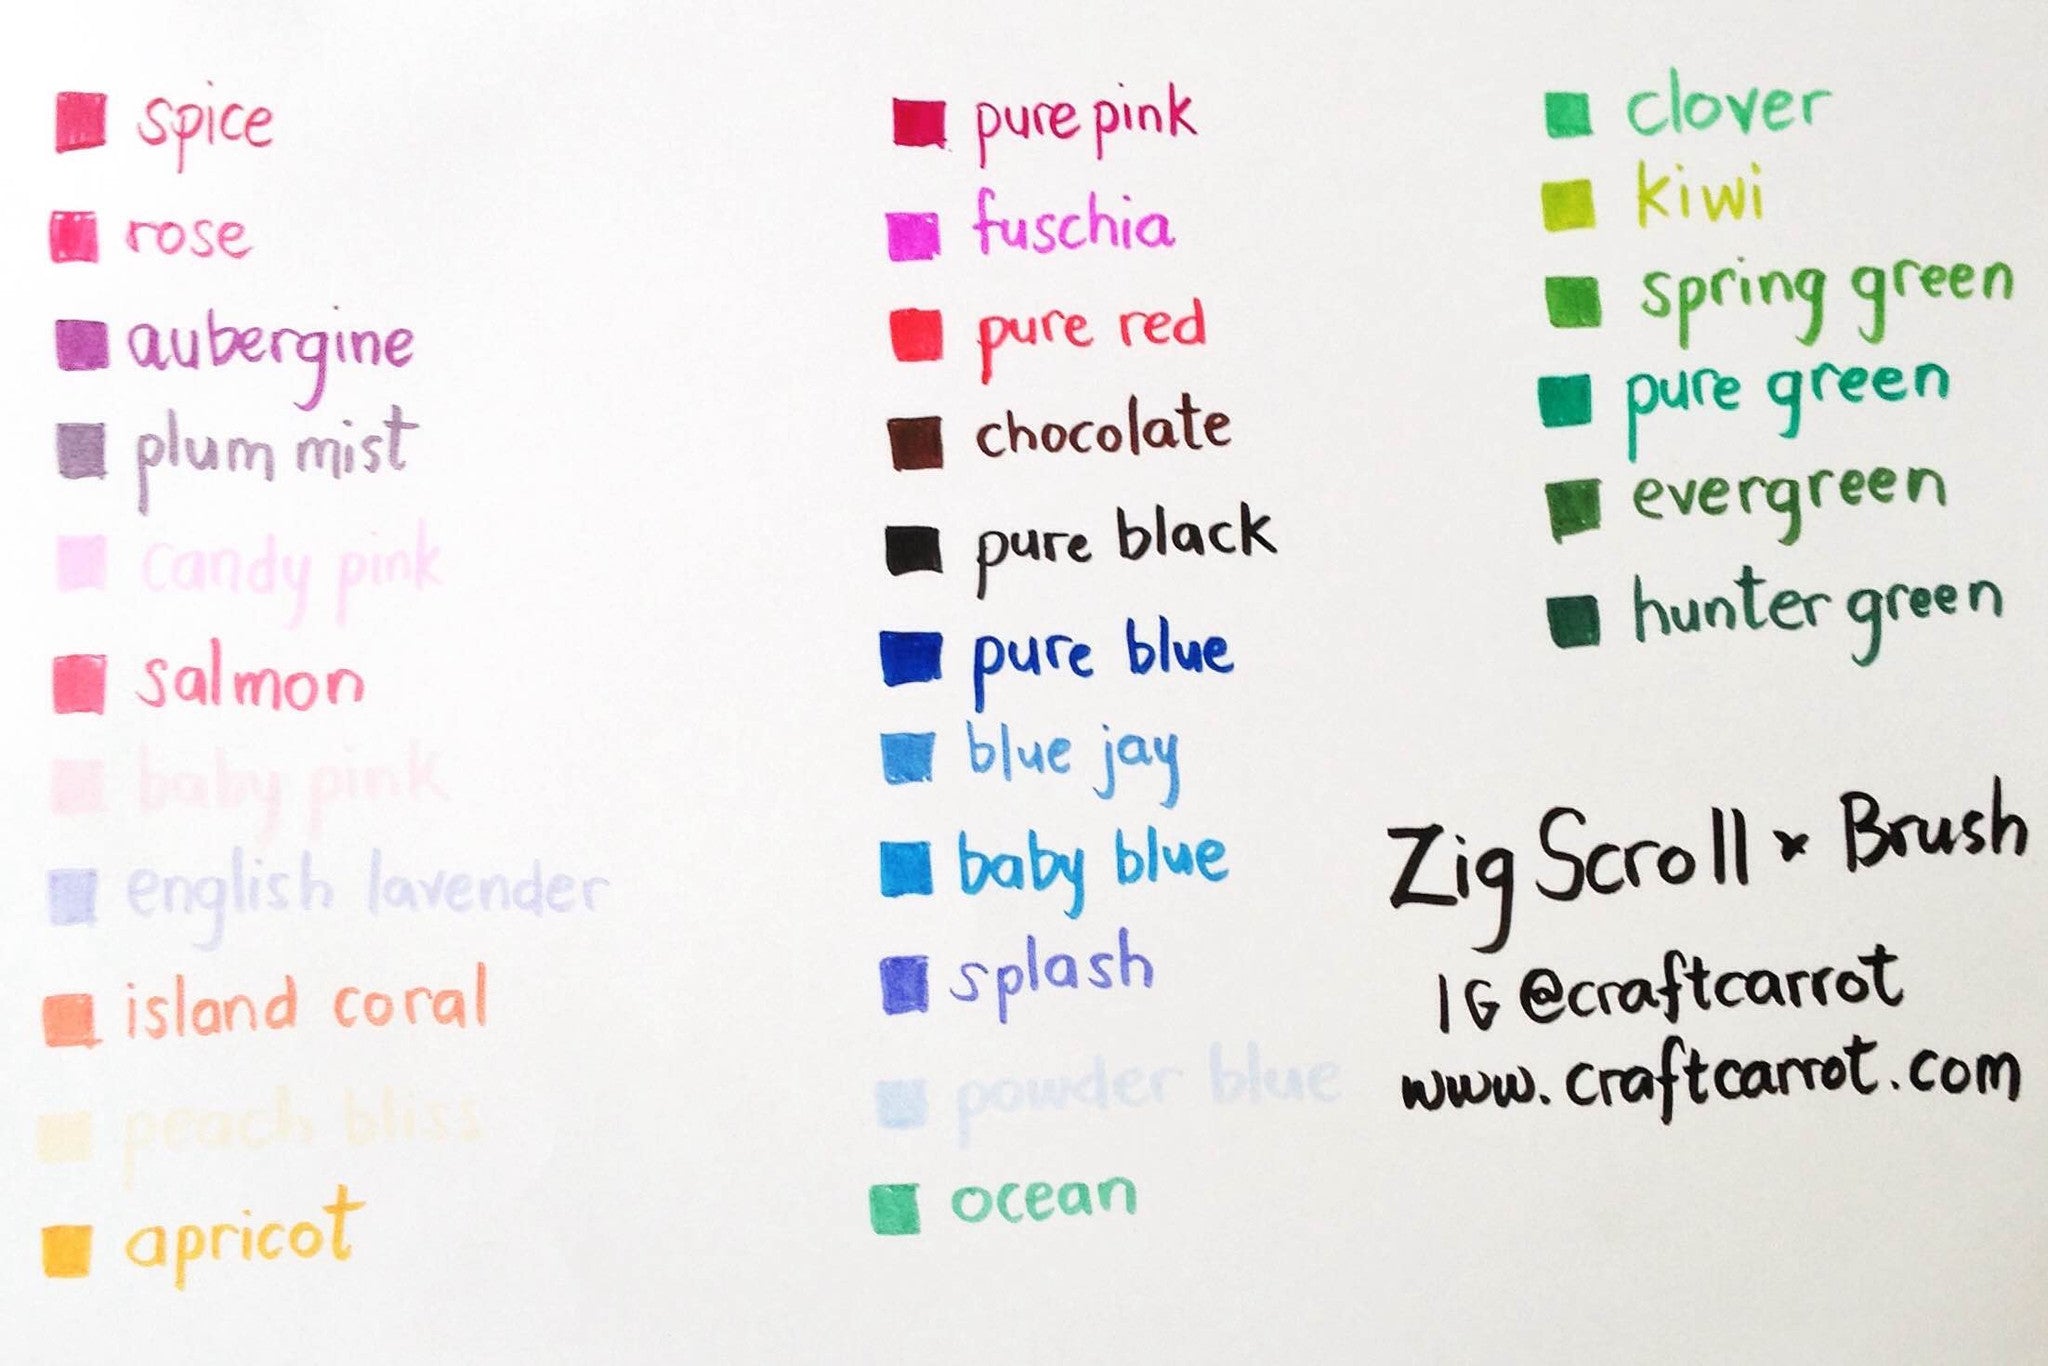 spice
rose
aubergine
plum mist
candy pink
salmon
baby pink
english lavender
island coral
peach bliss
apricot
pure pink
fuschia
pure red
chocolate
pure black
pure blue
blue jay
baby blue
splash
powder blue
ocean
clover
kiwi
spring green
pure green
evergreen
hunter green
Zig Scroll & Brush
IG @craftcarrot
www.craftcarrot.com